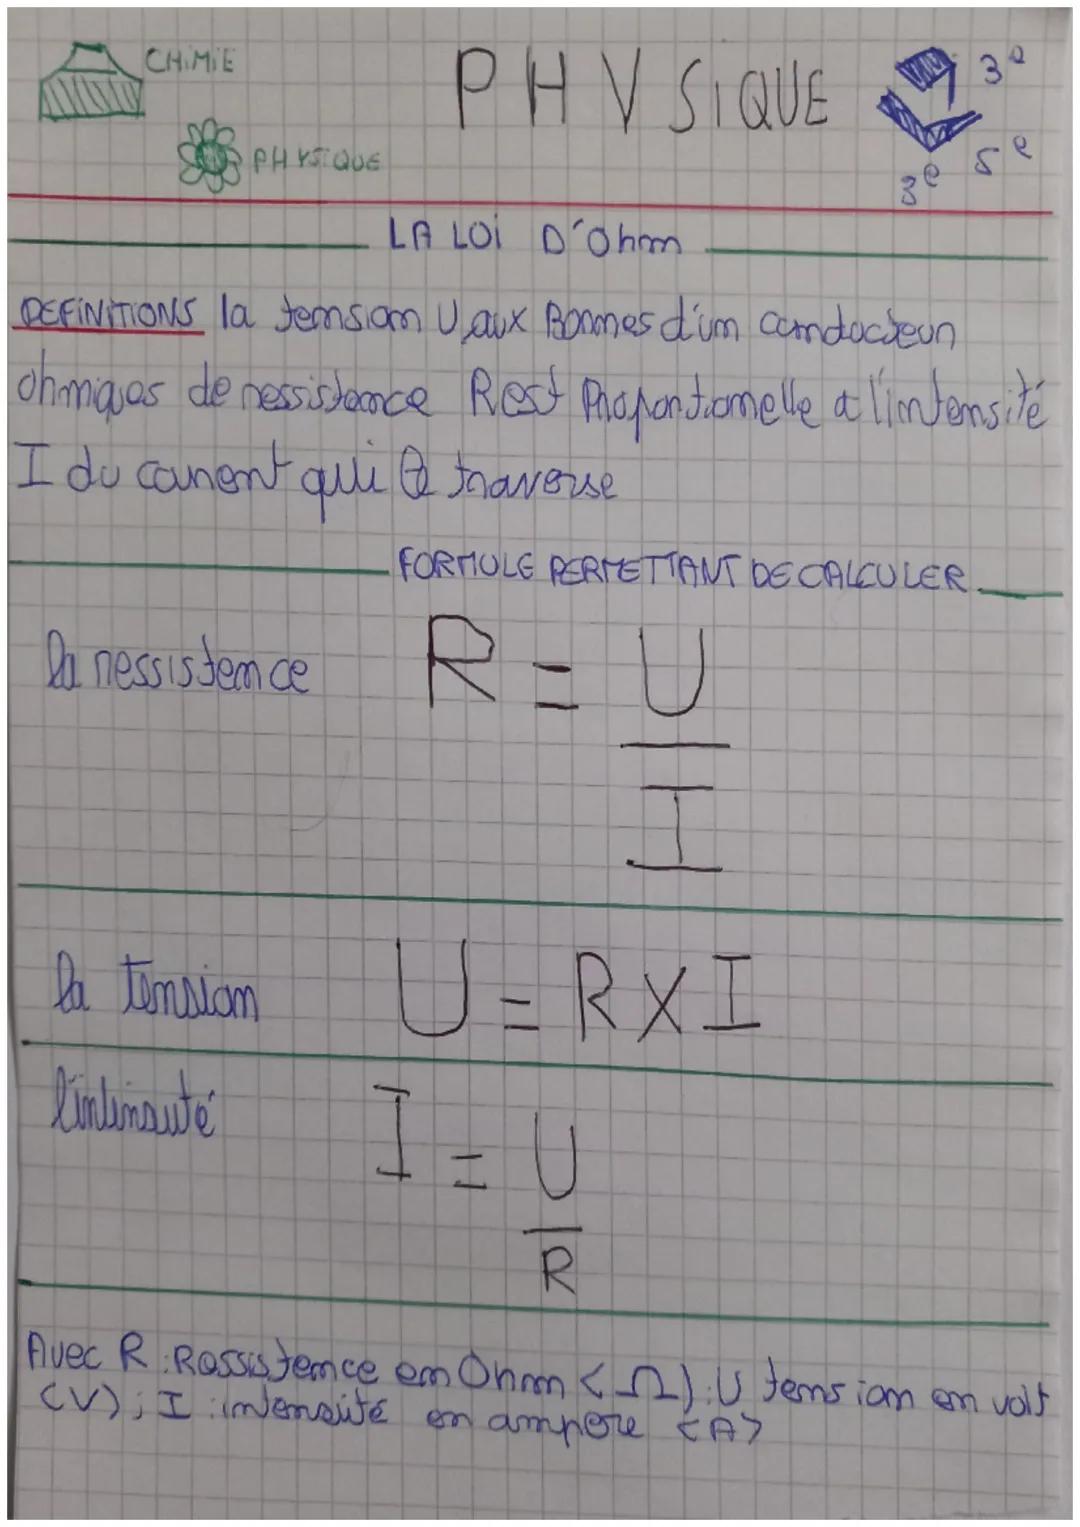 CHIMIE
PHYSIQUE
PHYSIQUE
3e
5e
3e
LA LOI D'Ohm
DEFINITIONS la tension U aux Bornes d'un conducteur
ohmiques de ressistance R est Proportionnelle a l'intensité
I du courent qui le traverse
FORMULE PERMETTANT DE CALCULER
la ressistence R = U
I
la tension U = R X I
l'intensité I = U
R
Avec R : Ressistence en Ohm < Ω ) : U tension en volt
(V) ; I : intensité en ampere <A>